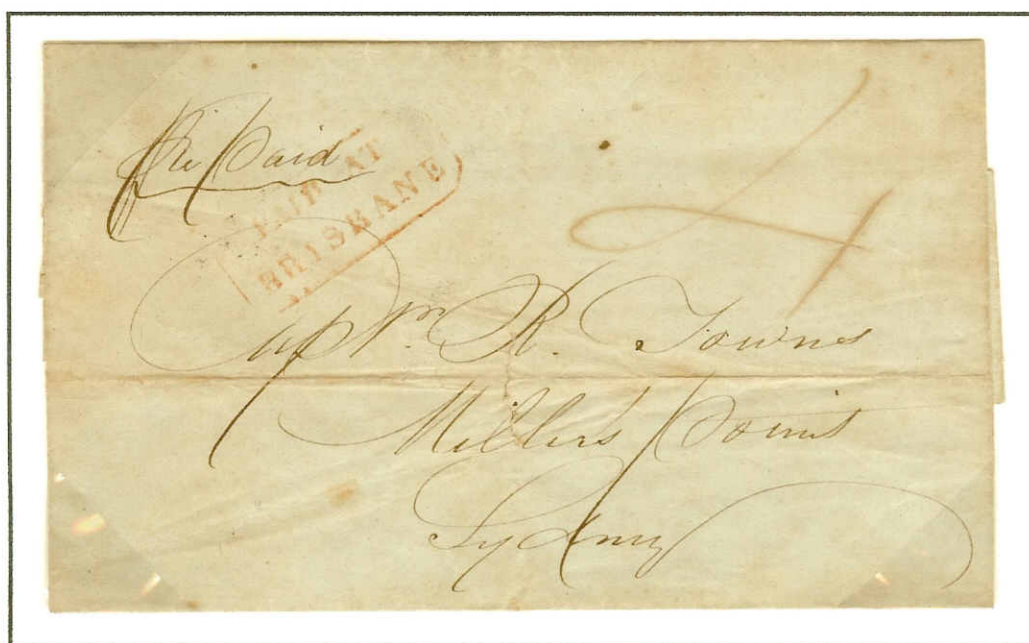 Pre Paid
PAID AT
BRISBANE
4
Captn. R. Towns
Millers Point
Sydney